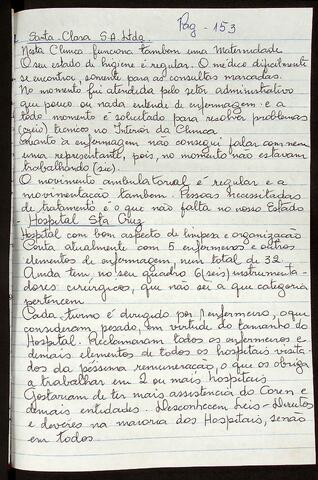 Pag - 153
Santa Clara S.A. Ltda.
Nesta Clínica funciona tambem uma Maternidade
O seu estado de higiene é regular. O médico dificilmente
se encontra, somente para as consultas marcadas.
No momento fui atendida pelo setor administrativo
que pouco ou nada entende de enfermagem e a
todo momento é solicitado para resolver problemas
(seu) técnicos no Interior da Clínica.
Quanto à enfermagem não consegui falar com nem
uma representante, pois, no momento não estavam
trabalhando (sic).
O movimento ambulatorial é regular e a
movimentação tambem. Pessoas necessitadas
de tratamento é o que não falta no nosso Estado
Hospital Sta Cruz
Hospital com bom aspecto de limpesa e organização
Conta atualmente com 5 enfermeiros e outros
elementos de enfermagem, num total de 32.
Ainda tem no seu quadro 6 (seis) instrumenta-
dores cirúrgicos, que não sei a que categoria
pertencem
Cada turno é dirigido por 1 enfermeiro, o que
consideram pesado, em virtude do tamanho do
Hospital. Reclamaram todos os enfermeiros e
demais elementos de todos os hospitais visita-
dos da péssima remuneração, o que os obriga
a trabalhar em 2 ou mais hospitais
Gostariam de ter mais assistencia do Coren e
demais entidades. Desconhecem Leis - Direitos
e deveres na maioria dos Hospitais, senão
em todos